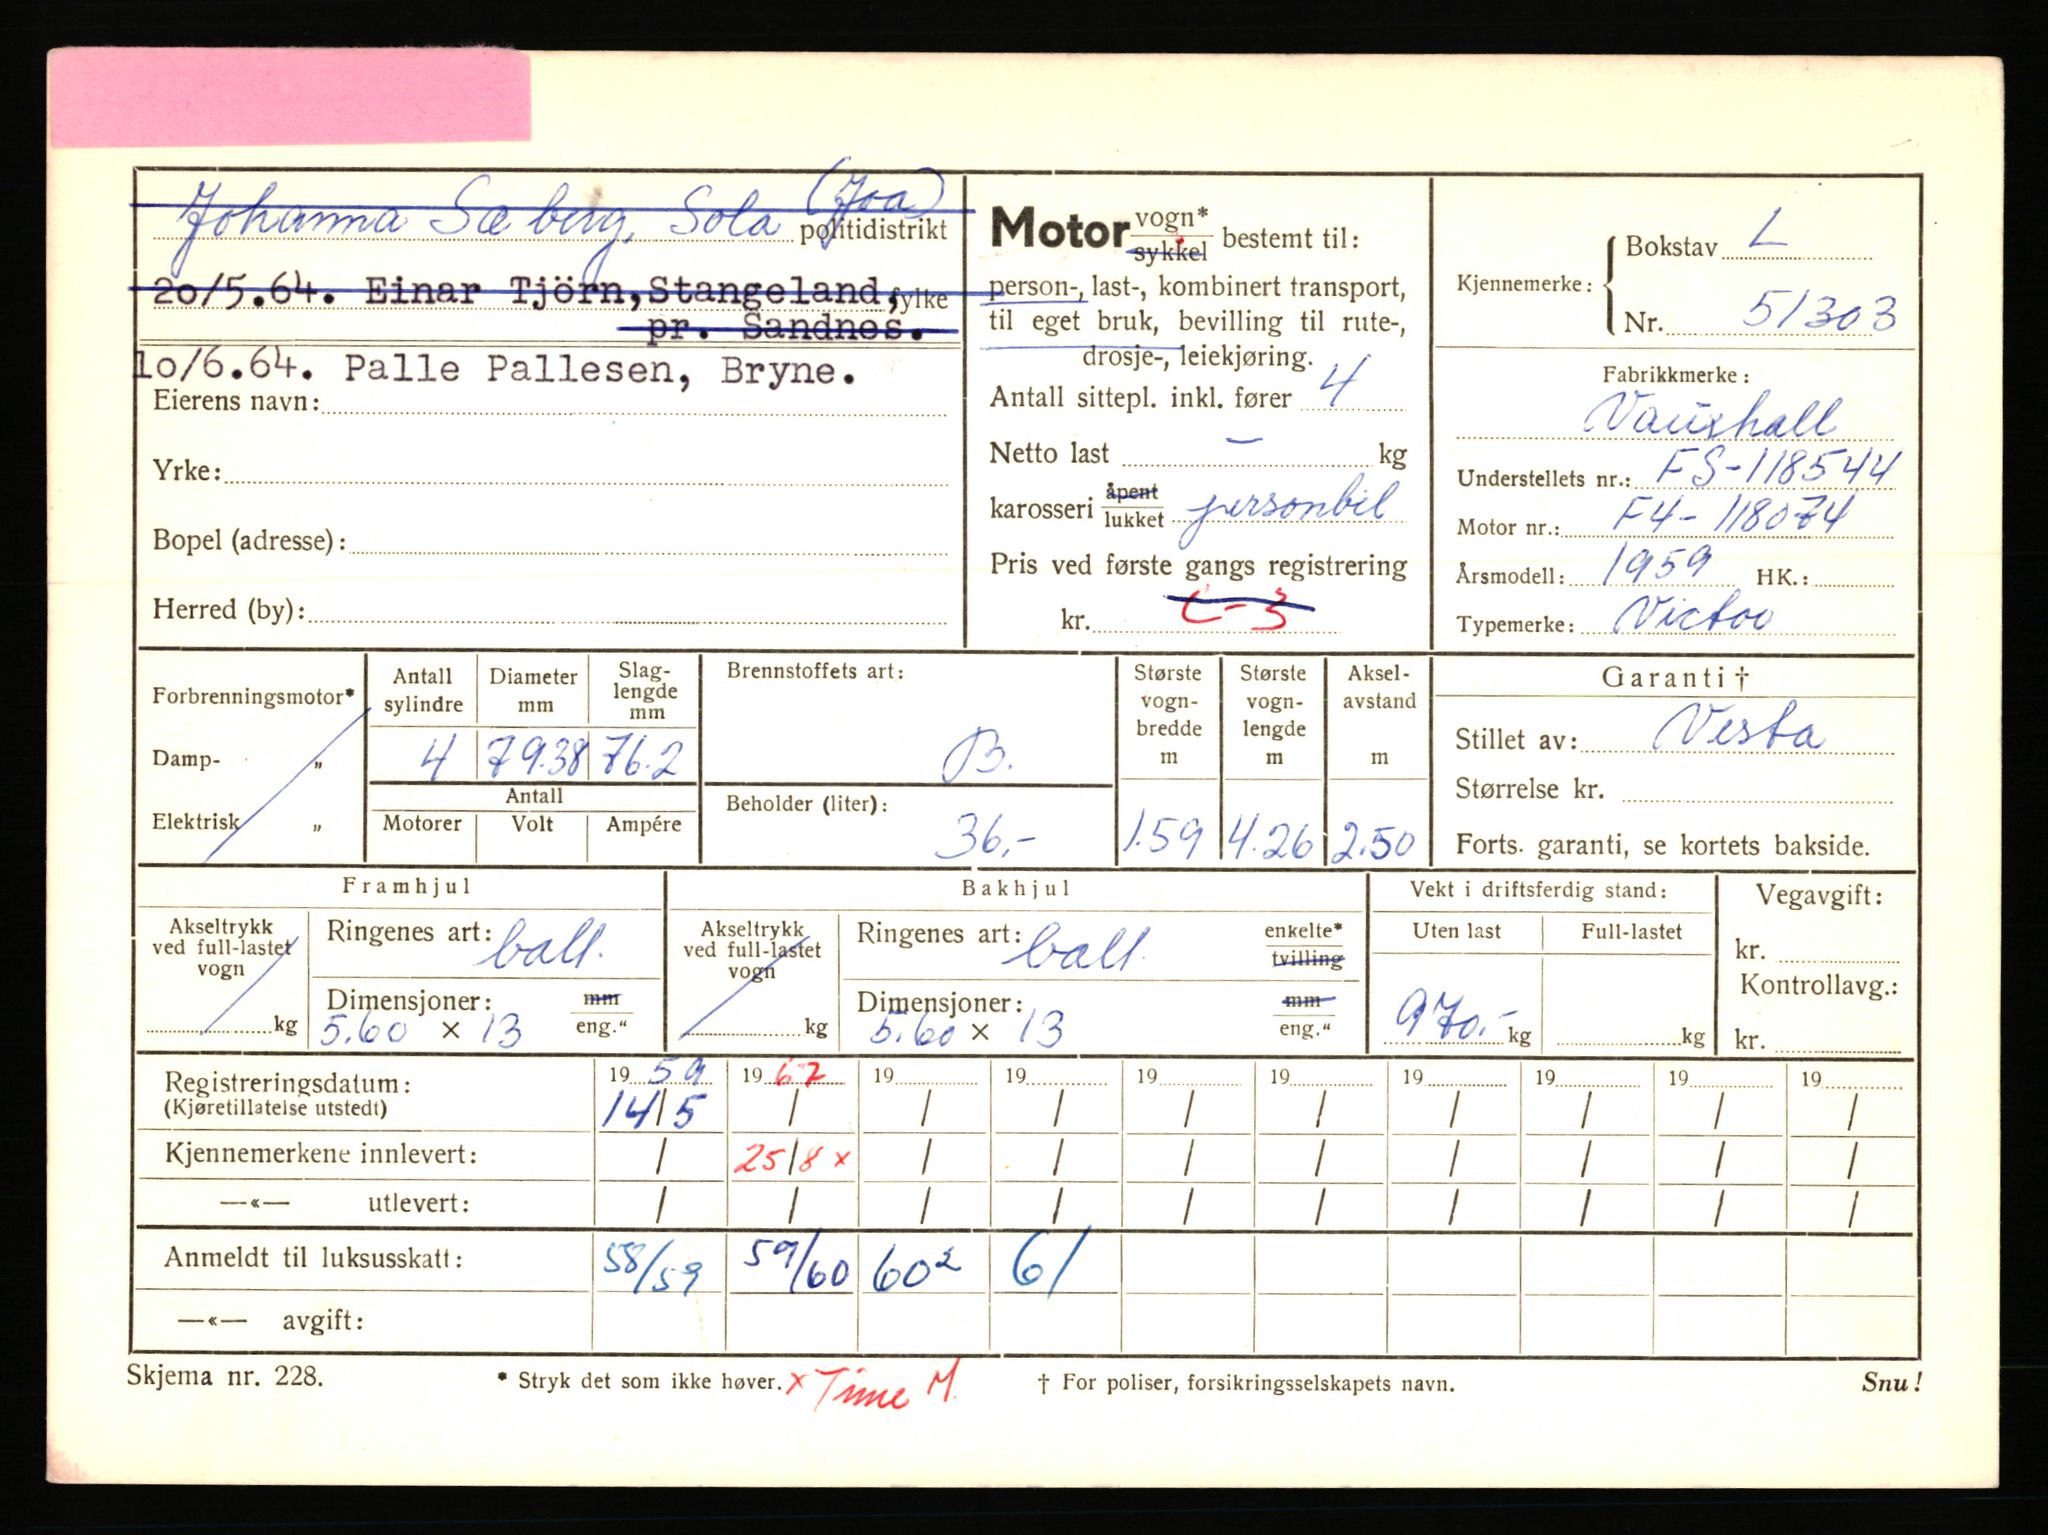 Johanna Sæberg, Sola (Joa) politidistrikt
20/5.64. Einar Tjörn, Stangeland, fylke
pr. Sandnes.
10/6.64. Palle Pallesen, Bryne.
Eierens navn:
Yrke:
Bopel (adresse):
Herred (by):
Motor vogn* sykkel bestemt til:
person-, last-, kombinert transport,
til eget bruk, bevilling til rute-,
drosje-, leiekjøring.
Antall sittepl. inkl. fører 4
Netto last – kg
karosseri åpent lukket personbil
Pris ved første gangs registrering
kr. C-3
Kjennemerke: Bokstav L
Nr. 51303
Fabrikkmerke:
Vauxhall
Understellets nr.: FS-118544
Motor nr.: F4-118074
Årsmodell: 1959 HK.:
Typemerke: Victor
Forbrenningsmotor*
Damp- „
Elektrisk „
Antall sylindre Diameter mm Slag-lengde mm
4 79.38 76.2
Antall
Motorer Volt Ampére
Brennstoffets art:
B.
Beholder (liter):
36,-
Største vogn-bredde m Største vogn-lengde m Aksel-avstand m
1.59 4.26 2.50
Garanti †
Stillet av: Vesta
Størrelse kr.
Forts. garanti, se kortets bakside.
Framhjul
Akseltrykk ved full-lastet vogn
kg
Ringenes art: ball.
Dimensjoner: mm
5.60 × 13 eng."
Bakhjul
Akseltrykk ved full-lastet vogn
kg
Ringenes art: ball. enkelte* tvilling
Dimensjoner: mm
5.60 × 13 eng."
Vekt i driftsferdig stand:
Uten last Full-lastet
970.- kg kg
Vegavgift:
kr.
Kontrollavg.:
kr.
Registreringsdatum: 19 59 19 67 19 19 19 19 19 19 19 19
(Kjøretillatelse utstedt) 14/5 / / / / / / / / /
Kjennemerkene innlevert: / 25/8 x / / / / / / / /
—«— utlevert: / / / / / / / / / /
Anmeldt til luksusskatt: 58/59 59/60 60² 61
—«— avgift:
Skjema nr. 228. * Stryk det som ikke høver. x Time M. † For poliser, forsikringsselskapets navn. Snu!